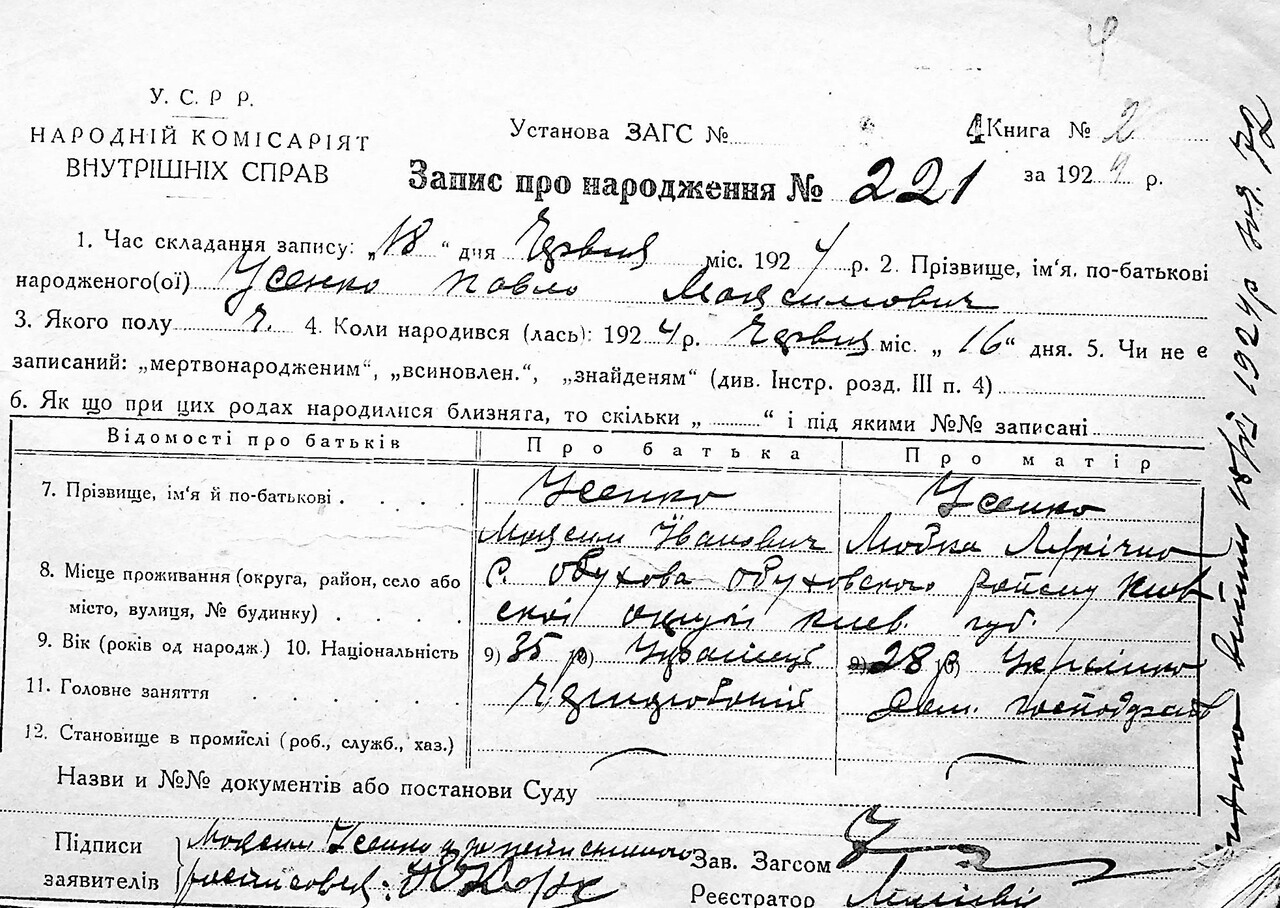 У. С. Р Р.
НАРОДНІЙ КОМІСАРІЯТ
ВНУТРІШНІХ СПРАВ
Установа ЗАГС №
Книга № 2
Запис про народження № 221
за 1924 р.
1. Час складання запису: „18“ дня Червця міс. 1924 р. 2. Прізвище, ім‘я, по-батькові
народженого(ої) Усенко Павло Максимович
3. Якого полу ч. 4. Коли народився (лась): 1924 р. Червця міс. „16“ дня. 5. Чи не є
записаний: „мертвонародженим“, „всиновлен.“, „знайденям“ (див. Інстр. розд. III п. 4)
6. Як що при цих родах народилися близняга, то скільки „ “ і під якими №№ записані
Відомості про батьків Про батька Про матір
7. Прізвище, ім‘я й по-батькові Усенко Усенко
Максим Іванович Любка
8. Місце проживання (округа, район, село або с. Обухова Обуховского району Киев
місто, вулиця, № будинку) скої округи Киев. губ.
9. Вік (років од народж.) 10. Національність 9) 35 р 10) Українець 9) 28 р 10) Українка
11. Головне заняття Дом. господарств
12. Становище в промислі (роб., служб., хаз.)
Назви и №№ документів або постанови Суду
Підписи Максим Усенко а за
заявителів
Зав. Загсом
Реєстратор
1924 р